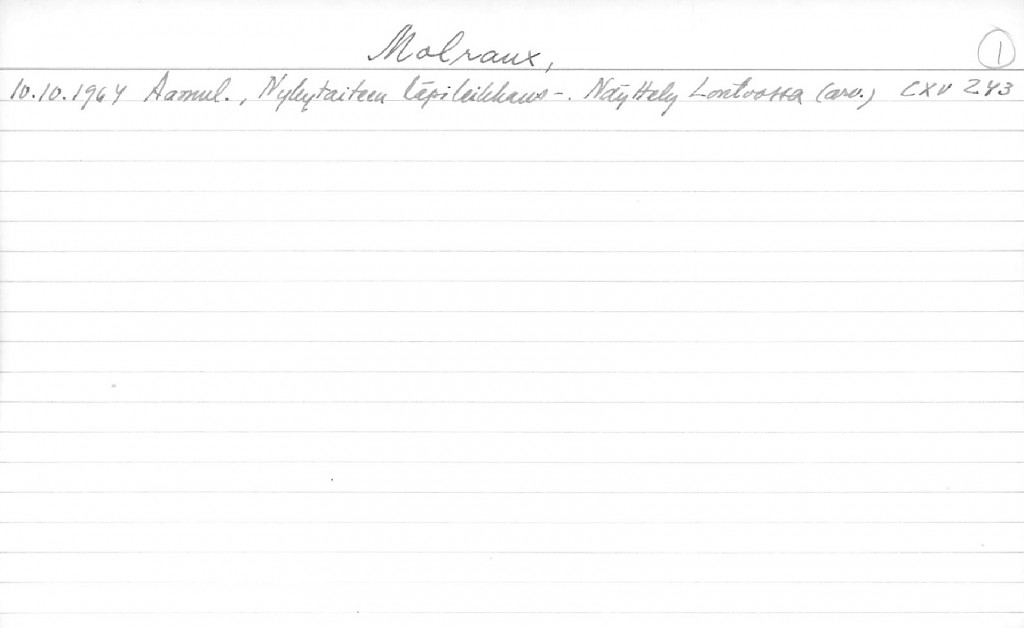 Molraux,
1
10.10.1964 Aamul., Nykytaiteen läpileikkaus -. Näyttely Lontoossa (arv.) CXV 243